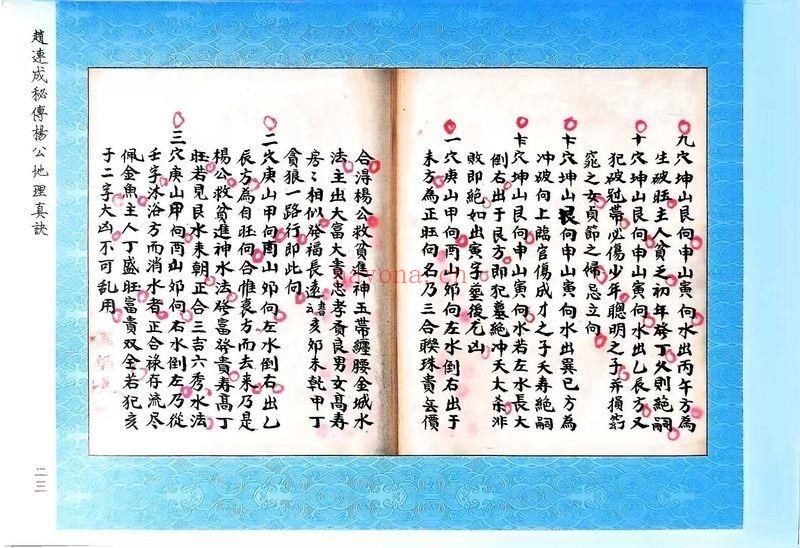 九穴坤山艮向申山寅向水出丙午方為
生破旺主人貧乏初年發丁久則絕嗣
十穴坤山艮向申山寅向水出乙辰方又
犯破冠帶必傷少年聰明之子并損窈
窕之女貞節之婦忌立向
十穴坤山艮向申山寅向水出巽巳方為
冲破向上臨官傷成才之子夭壽絕嗣
十穴坤山艮向申山寅向水若左水長大
倒右出于艮方即犯墓絕冲天大杀非
敗即絕如出寅字登後尤凶
一穴庚山甲向酉山卯向左水倒右出于
未方為正旺向名乃三合聯珠貴無價
合得楊公救貧進神玉帶纏腰金城水
法主出大富大貴忠孝賢良男女高壽
房房相似發福長遠 亥卯未乾甲丁
貪狼一路行即此向
二穴庚山甲向酉山卯向左水倒右出乙
辰方為自旺向合惟衰方而去來乃是
楊公救貧進神水法發富發貴壽高丁
旺若見艮水來朝正合三吉六秀水法
三穴庚山甲向酉山卯向右水倒左乃從
壬字沐浴方而消水者正合祿存流尽
佩金魚主人丁盛旺富貴双全若犯亥
于二字大凶不可乱用
趙連成秘傳楊公地理真訣
二三